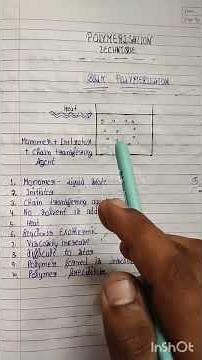 POLYMERISATION
TECHNIQUE
BULK POLYMERISATION
Heat
Monomer + Initiator
+ Chain transferring
Agent
1. Monomer - liquid state
2. Initiator
3. Chain transferring ag
4. No solvent is add
5. Heat
6. Reaction Exothermic
7. Viscosity increase
8. difficult to stir
9. Polymer formed is
10. Polymer precipitate